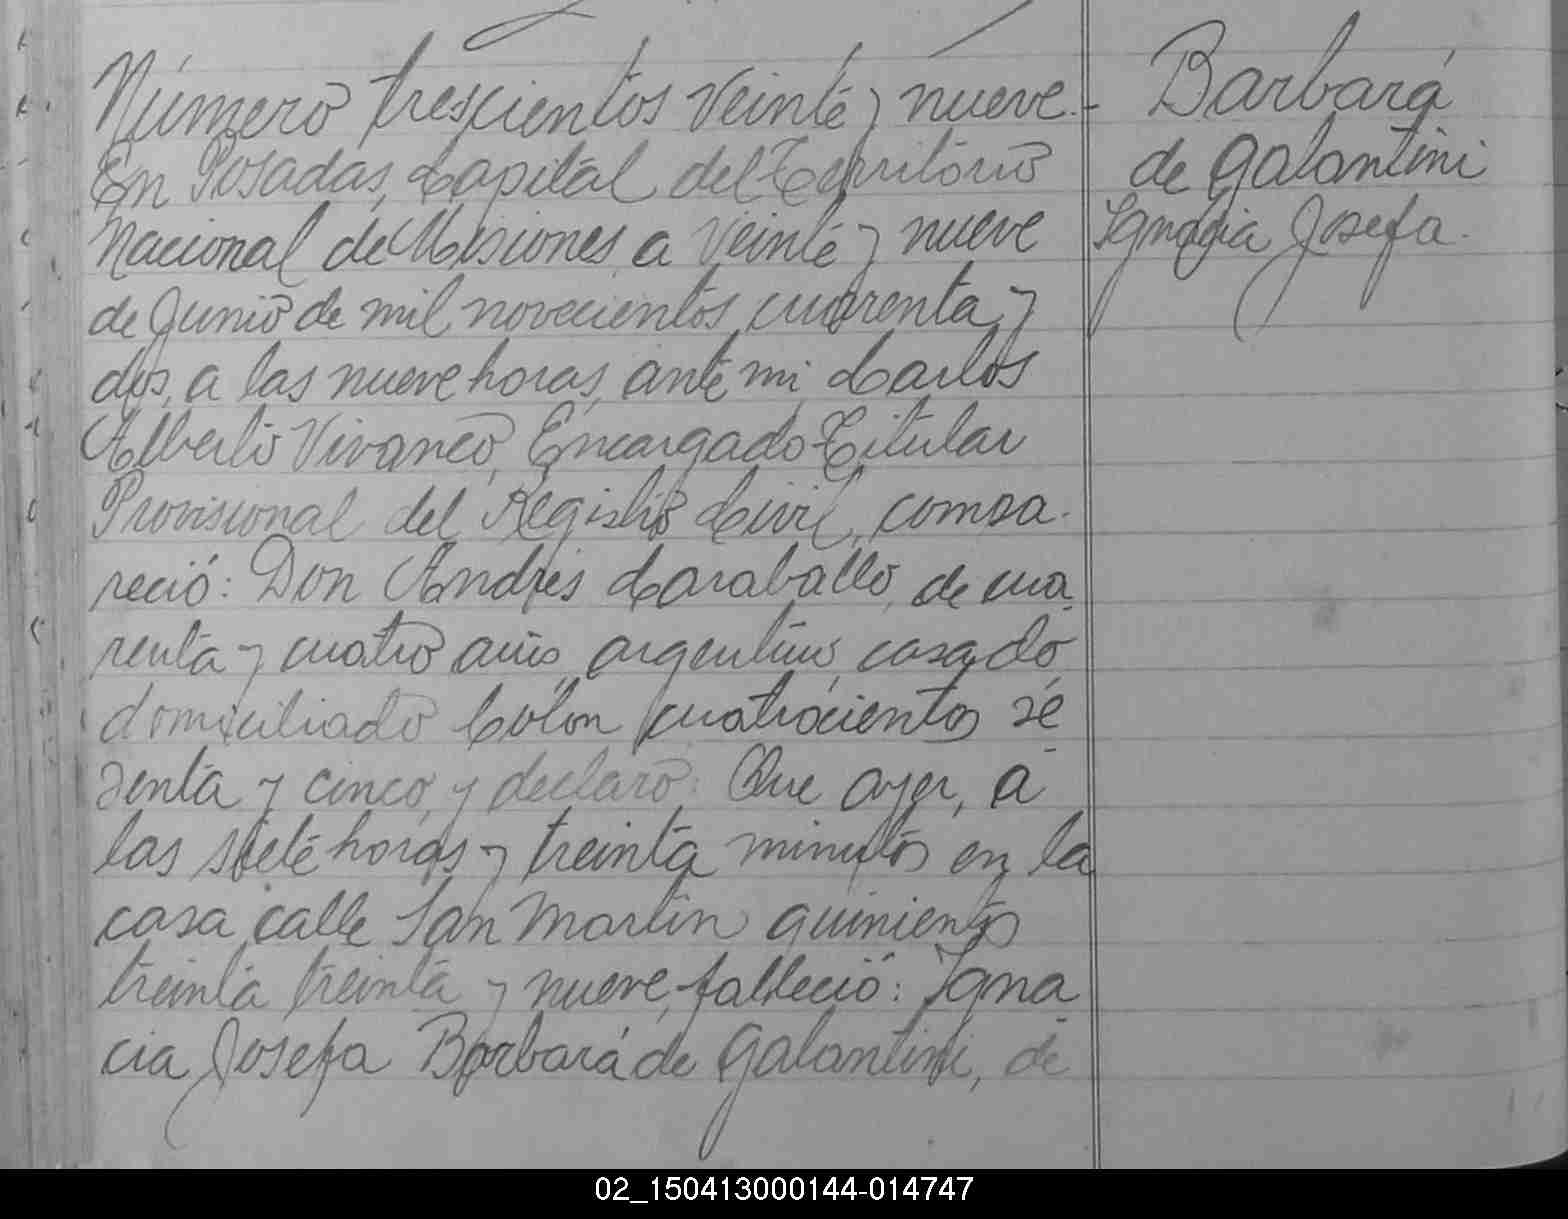 Número trescientos veinte y nueve.-
En Posadas, Capital del Territorio
Nacional de Misiones, a veinte y nueve
de Junio de mil novecientos cuarenta y
dos, a las nueve horas, ante mi, Carlos
Alberto Vivanco, Encargado Titular
Provisional del Registro Civil, compa-
reció: Don Andrés Caraballo, de cua-
renta y cuatro años, argentino, casado
domiciliado Colón cuatrocientos se-
senta y cinco y declaró: Que ayer, a
las siete horas y treinta minutos en la
casa calle San Martin quinientos
treinta treinta y nueve, falleció: Igna-
cia Josefa Barbará de Galantini, de
Barbará
de Galantini
Ignacia Josefa.
02_150413000144-014747